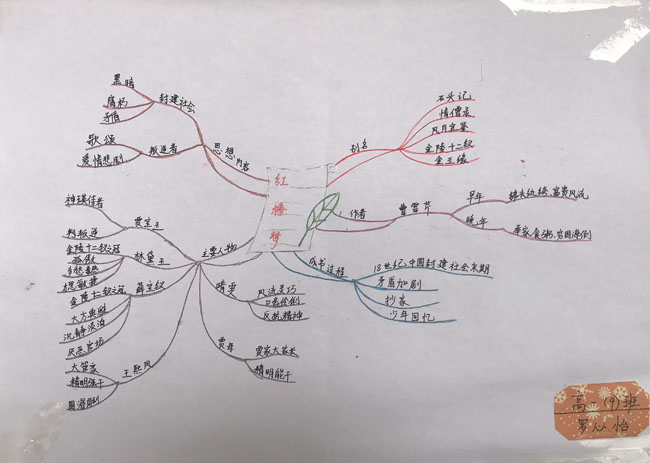 红
楼
梦
思想内容
封建社会
黑暗
腐朽
矛盾
叛逆者
歌颂
爱情悲剧
别名
石头记
情僧录
风月宝鉴
金陵十二钗
金玉缘
作者
曹雪芹
早年
锦衣纨绔、富贵风流
晚年
举家食粥、穷困潦倒
成书过程
18世纪,中国封建社会末期
矛盾加剧
抄家
少年回忆
主要人物
贾宝玉
神瑛侍者
叛逆
林黛玉
金陵十二钗之冠
孤傲
多愁善感
才思敏捷
薛宝钗
金陵十二钗之冠
大方典雅
沉静淡泊
厌恶官场
王熙凤
大管家
精明强干
圆滑
晴雯
风流灵巧
口齿伶俐
反抗精神
贾母
贾家大家长
精明能干
高一(9)班
罗心怡